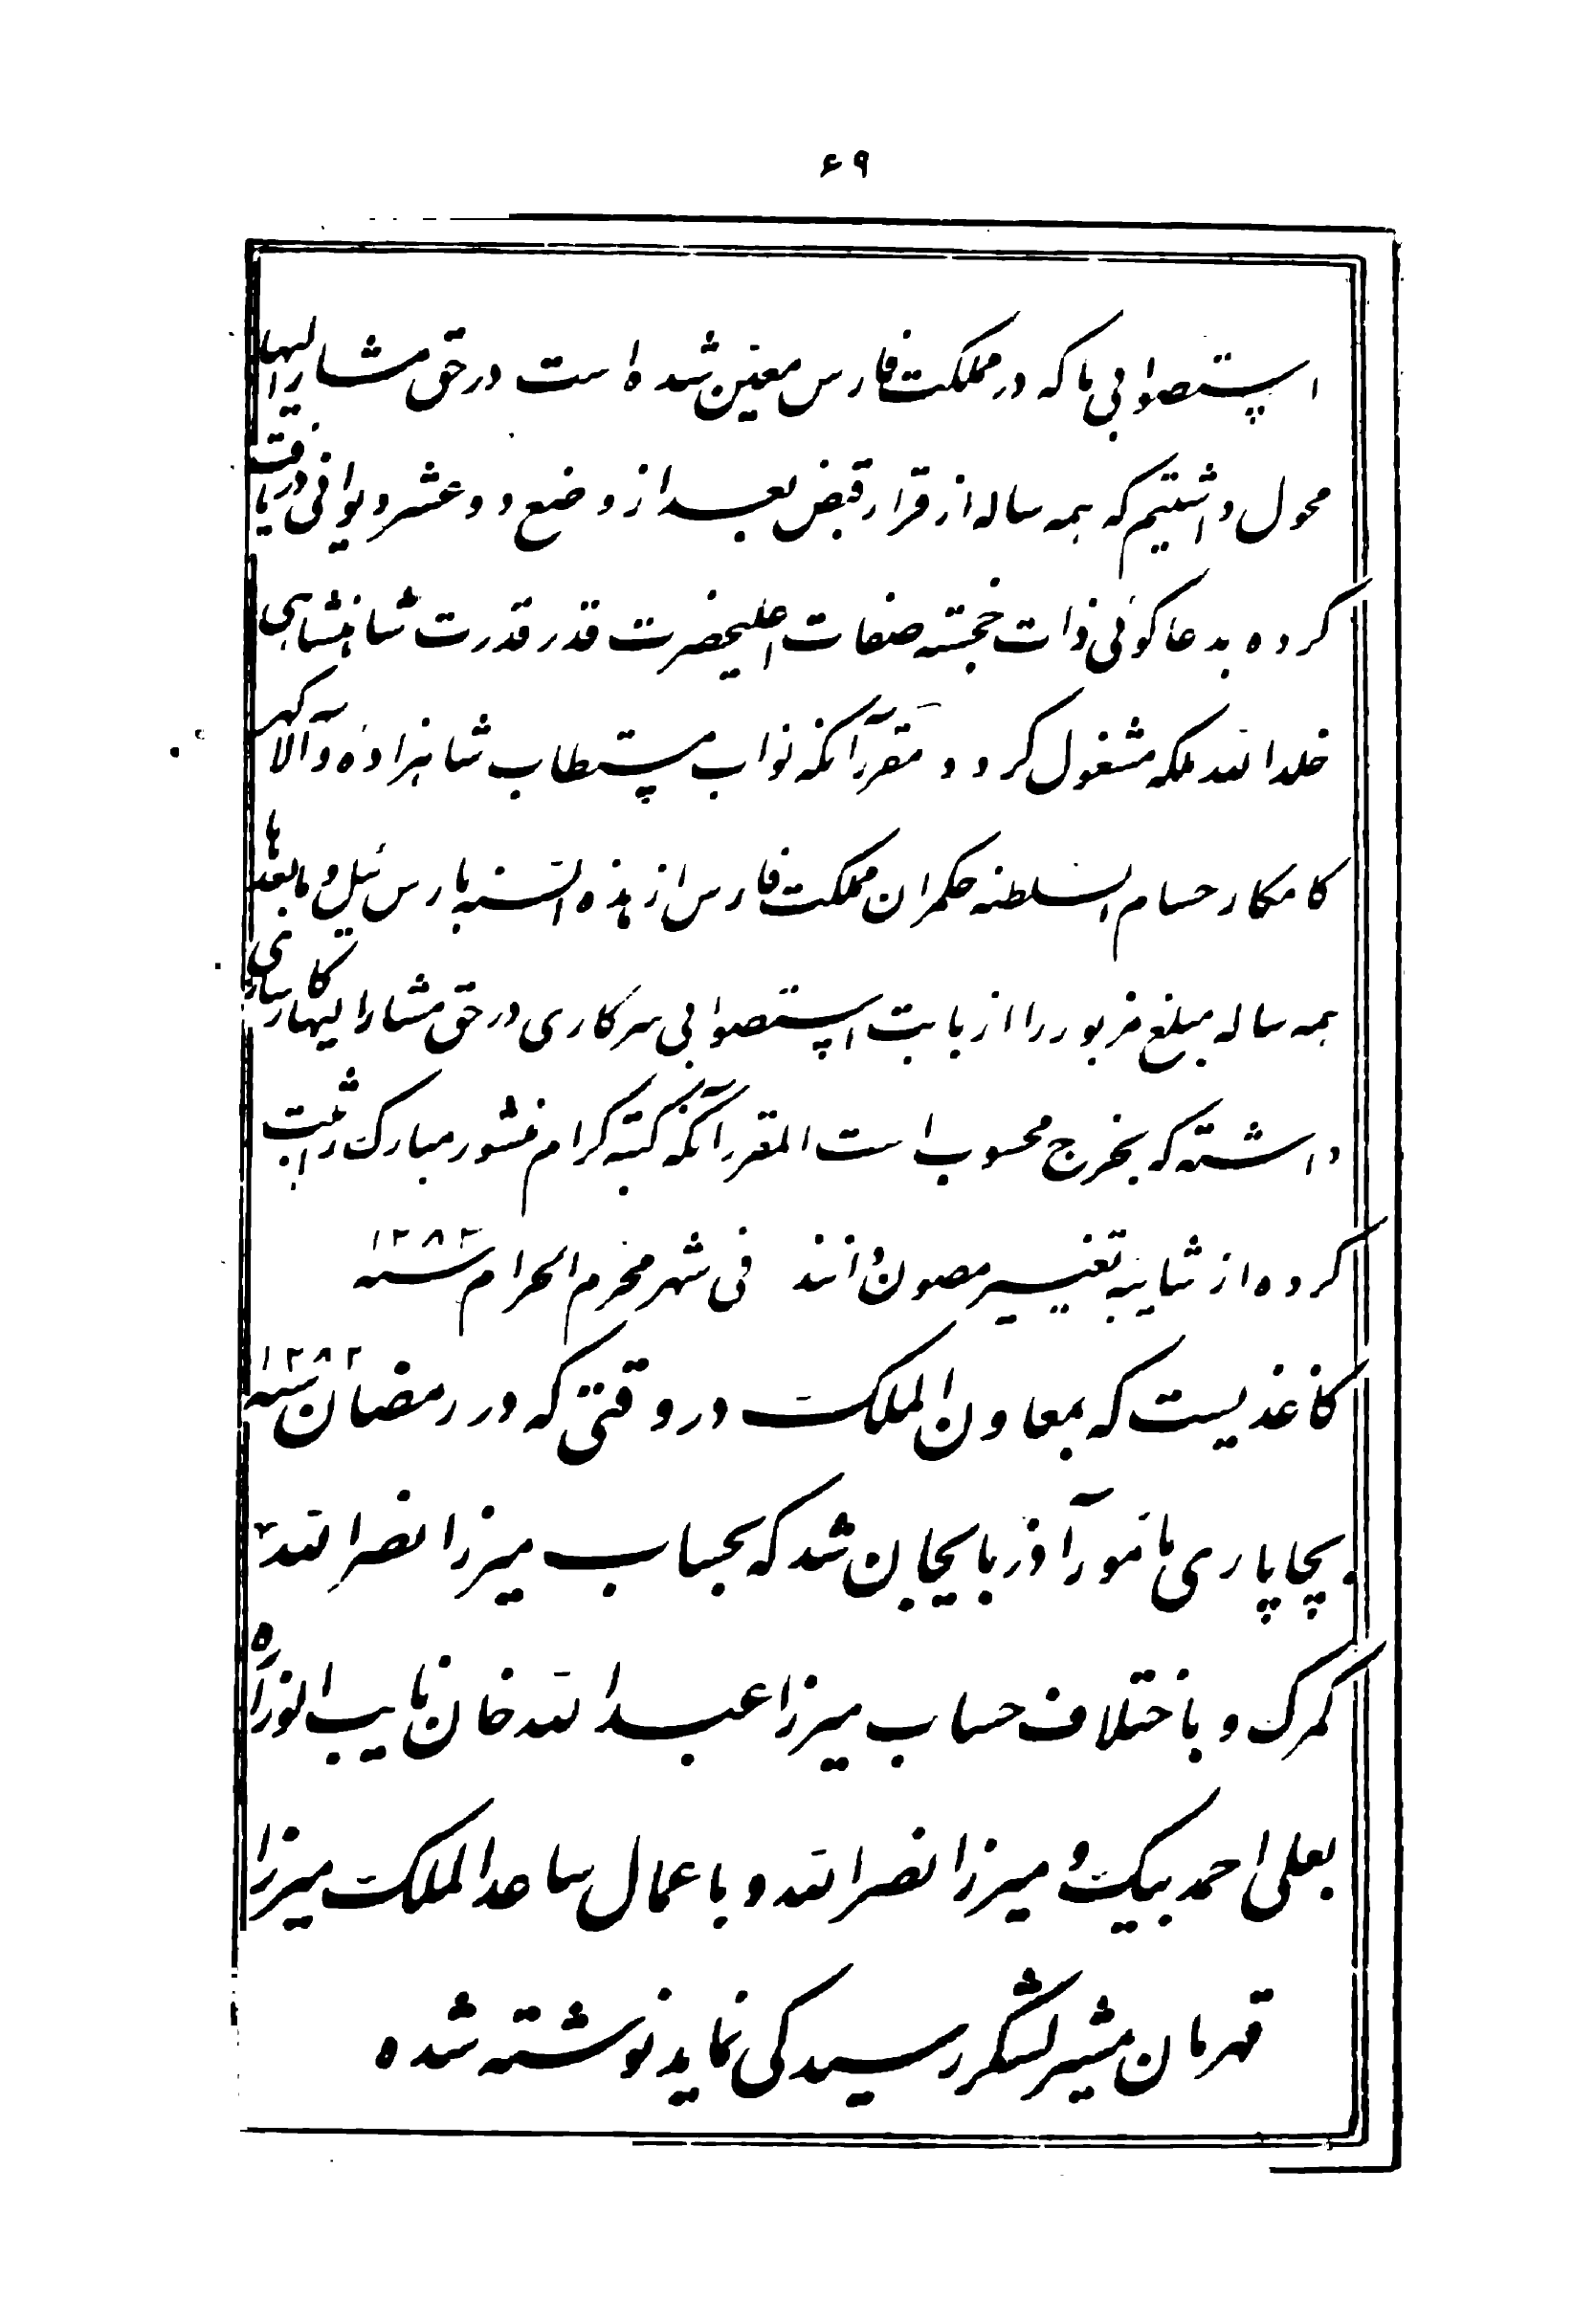 ۶۹
استصوابی ما که در مملکت فارس معین شده است در حق مشار الیها
محول داشتیم که همه ساله از قرار قبض بعد از وضع دو عشر دیوانی دریافت
کرده بدعاکوئی ذات خجسته صفات اعلیحضرت قدر قدرت شاهنشاهی
خلد الله ملکه مشغول کردد مقرر آنکه نواب مستطاب شاهزاده والا کهر
کامکار حسام السلطنه حکمران مملکت فارس از هذه السنه بارس ئیل و مابعدها
همه ساله مبلغ مزبور را از بابت استصوابی سرکاری در حق مشار الیها کارسازی
داشته که بخرج محسوب است المقرر آنکه کتبه کرام منشور مبارک را ثبت
کرده از شایبه تغییر مصون دانند فی شهر محرم الحرام سنه ۱۲۸۳
کاغذیست که بمعاون الملک در وقتی که در رمضان سنه ۱۲۸۲
بچاپاری مأمور آذربایجان شد که بحساب میرزا نصر الله
کمرک و باختلاف حساب میرزا عبد الله خان نایب الوزاره
بعلی احمد بیک و میرزا نصر الله و باعمال ساعد الملک میرزا
قهرمان مشیر لشکر رسیدکی نماید نوشته شده